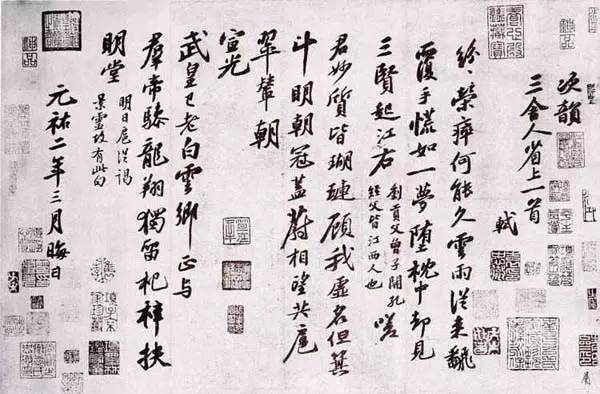 次韻
三舍人省上一首
軾
紛、榮瘁何能久雲雨從来翻
覆手慌如一夢墮枕中却見
三賢起江右
劉貢父曾子開孔
經父皆江西人也
嗟
君妙質皆瑚璉顧我虛名但箕
斗明朝冠蓋蔚相望共扈
翠輦朝
宣光
武皇已老白雲鄉正与
羣帝驂龍翔獨留杞梓扶
明堂
明日扈從謁
景靈故有此句
元祐二年三月晦日